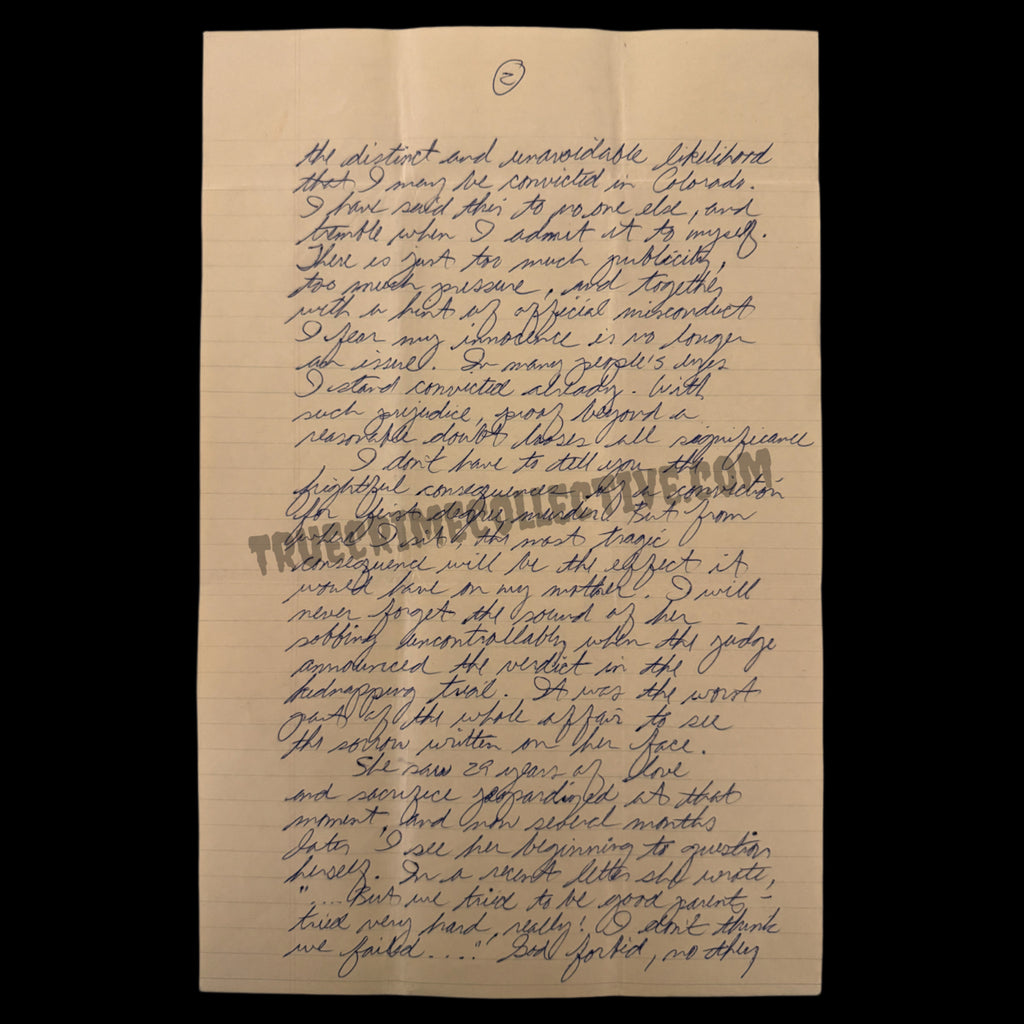 2
the distinct and unavoidable likelihood
that I may be convicted in Colorado.
I have said this to no one else, and
tremble when I admit it to myself.
There is just too much publicity,
too much pressure, and together
with a hint of official misconduct
I fear my innocence is no longer
an issue. In many people's eyes
I stand convicted already. With
such prejudice, proof beyond a
reasonable doubt looses all significance
I don't have to tell you the
frightful consequences of a conviction
for first degree murder. But from
where I sit, the most tragic
consequence will be the effect it
would have on my mother. I will
never forget the sound of her
sobbing uncontrollably when the judge
announced the verdict in the
kidnapping trial. It was the worst
part of the whole affair to see
the sorrow written on her face.
She saw 29 years of love
and sacrifice jeopardized at that
moment, and now several months
later I see her beginning to question
herself. In a recent letter she wrote,
"....But we tried to be good parents –
tried very hard, really! I don't think
we failed....." God forbid, no they
TRUECRIMECOLLECTIVE.COM